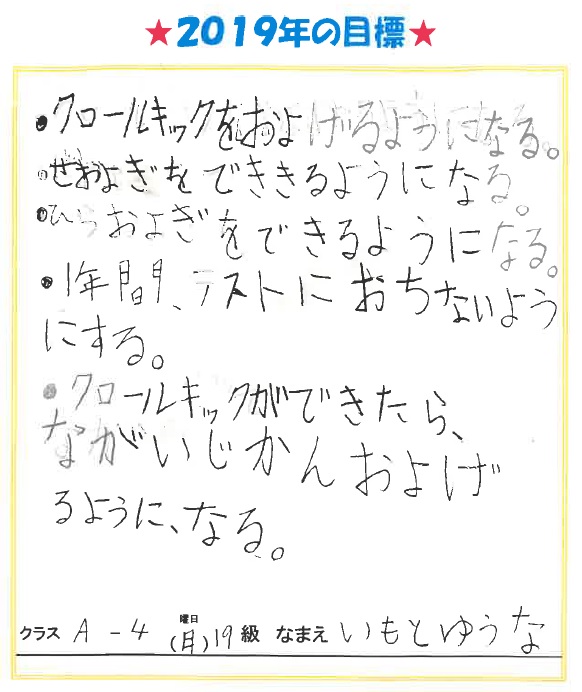 ★2019年の目標★
●クロールキックをおよげるようになる。
●せおよぎをでききるようになる。
●ひらおよぎをできるようになる。
●1年間、テストにおちないよう
にする。
●クロールキックができたら、
ながいじかんおよげ
るように、なる。
クラス A-4 曜日(月)19級 なまえ いもとゆうな